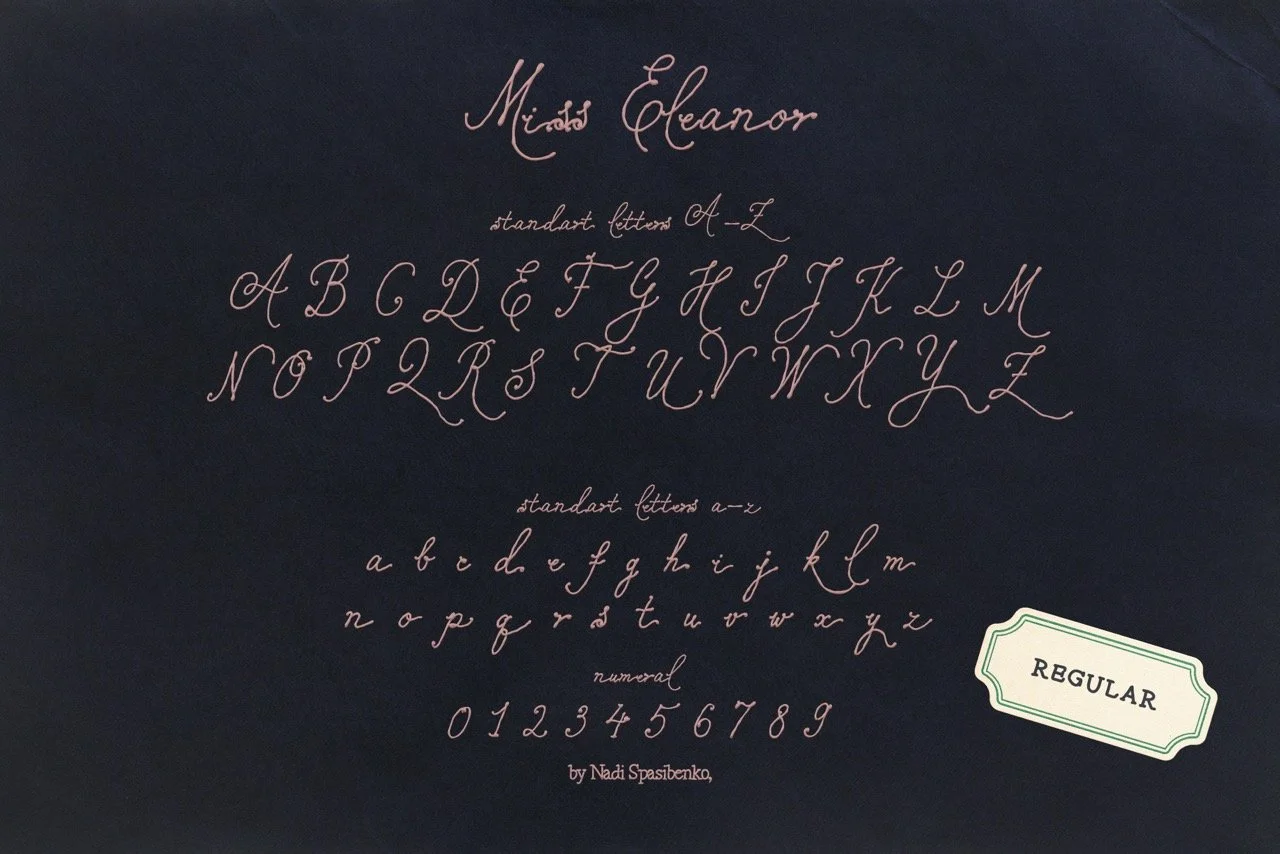 Miss Eleanor
standart letters A-Z
A B C D E F G H I J K L M
N O P Q R S T U V W X Y Z
standart letters a-z
a b c d e f g h i j k l m
n o p q r s t u v w x y z
numeral
0 1 2 3 4 5 6 7 8 9
by Nadi Spasibenko,
REGULAR